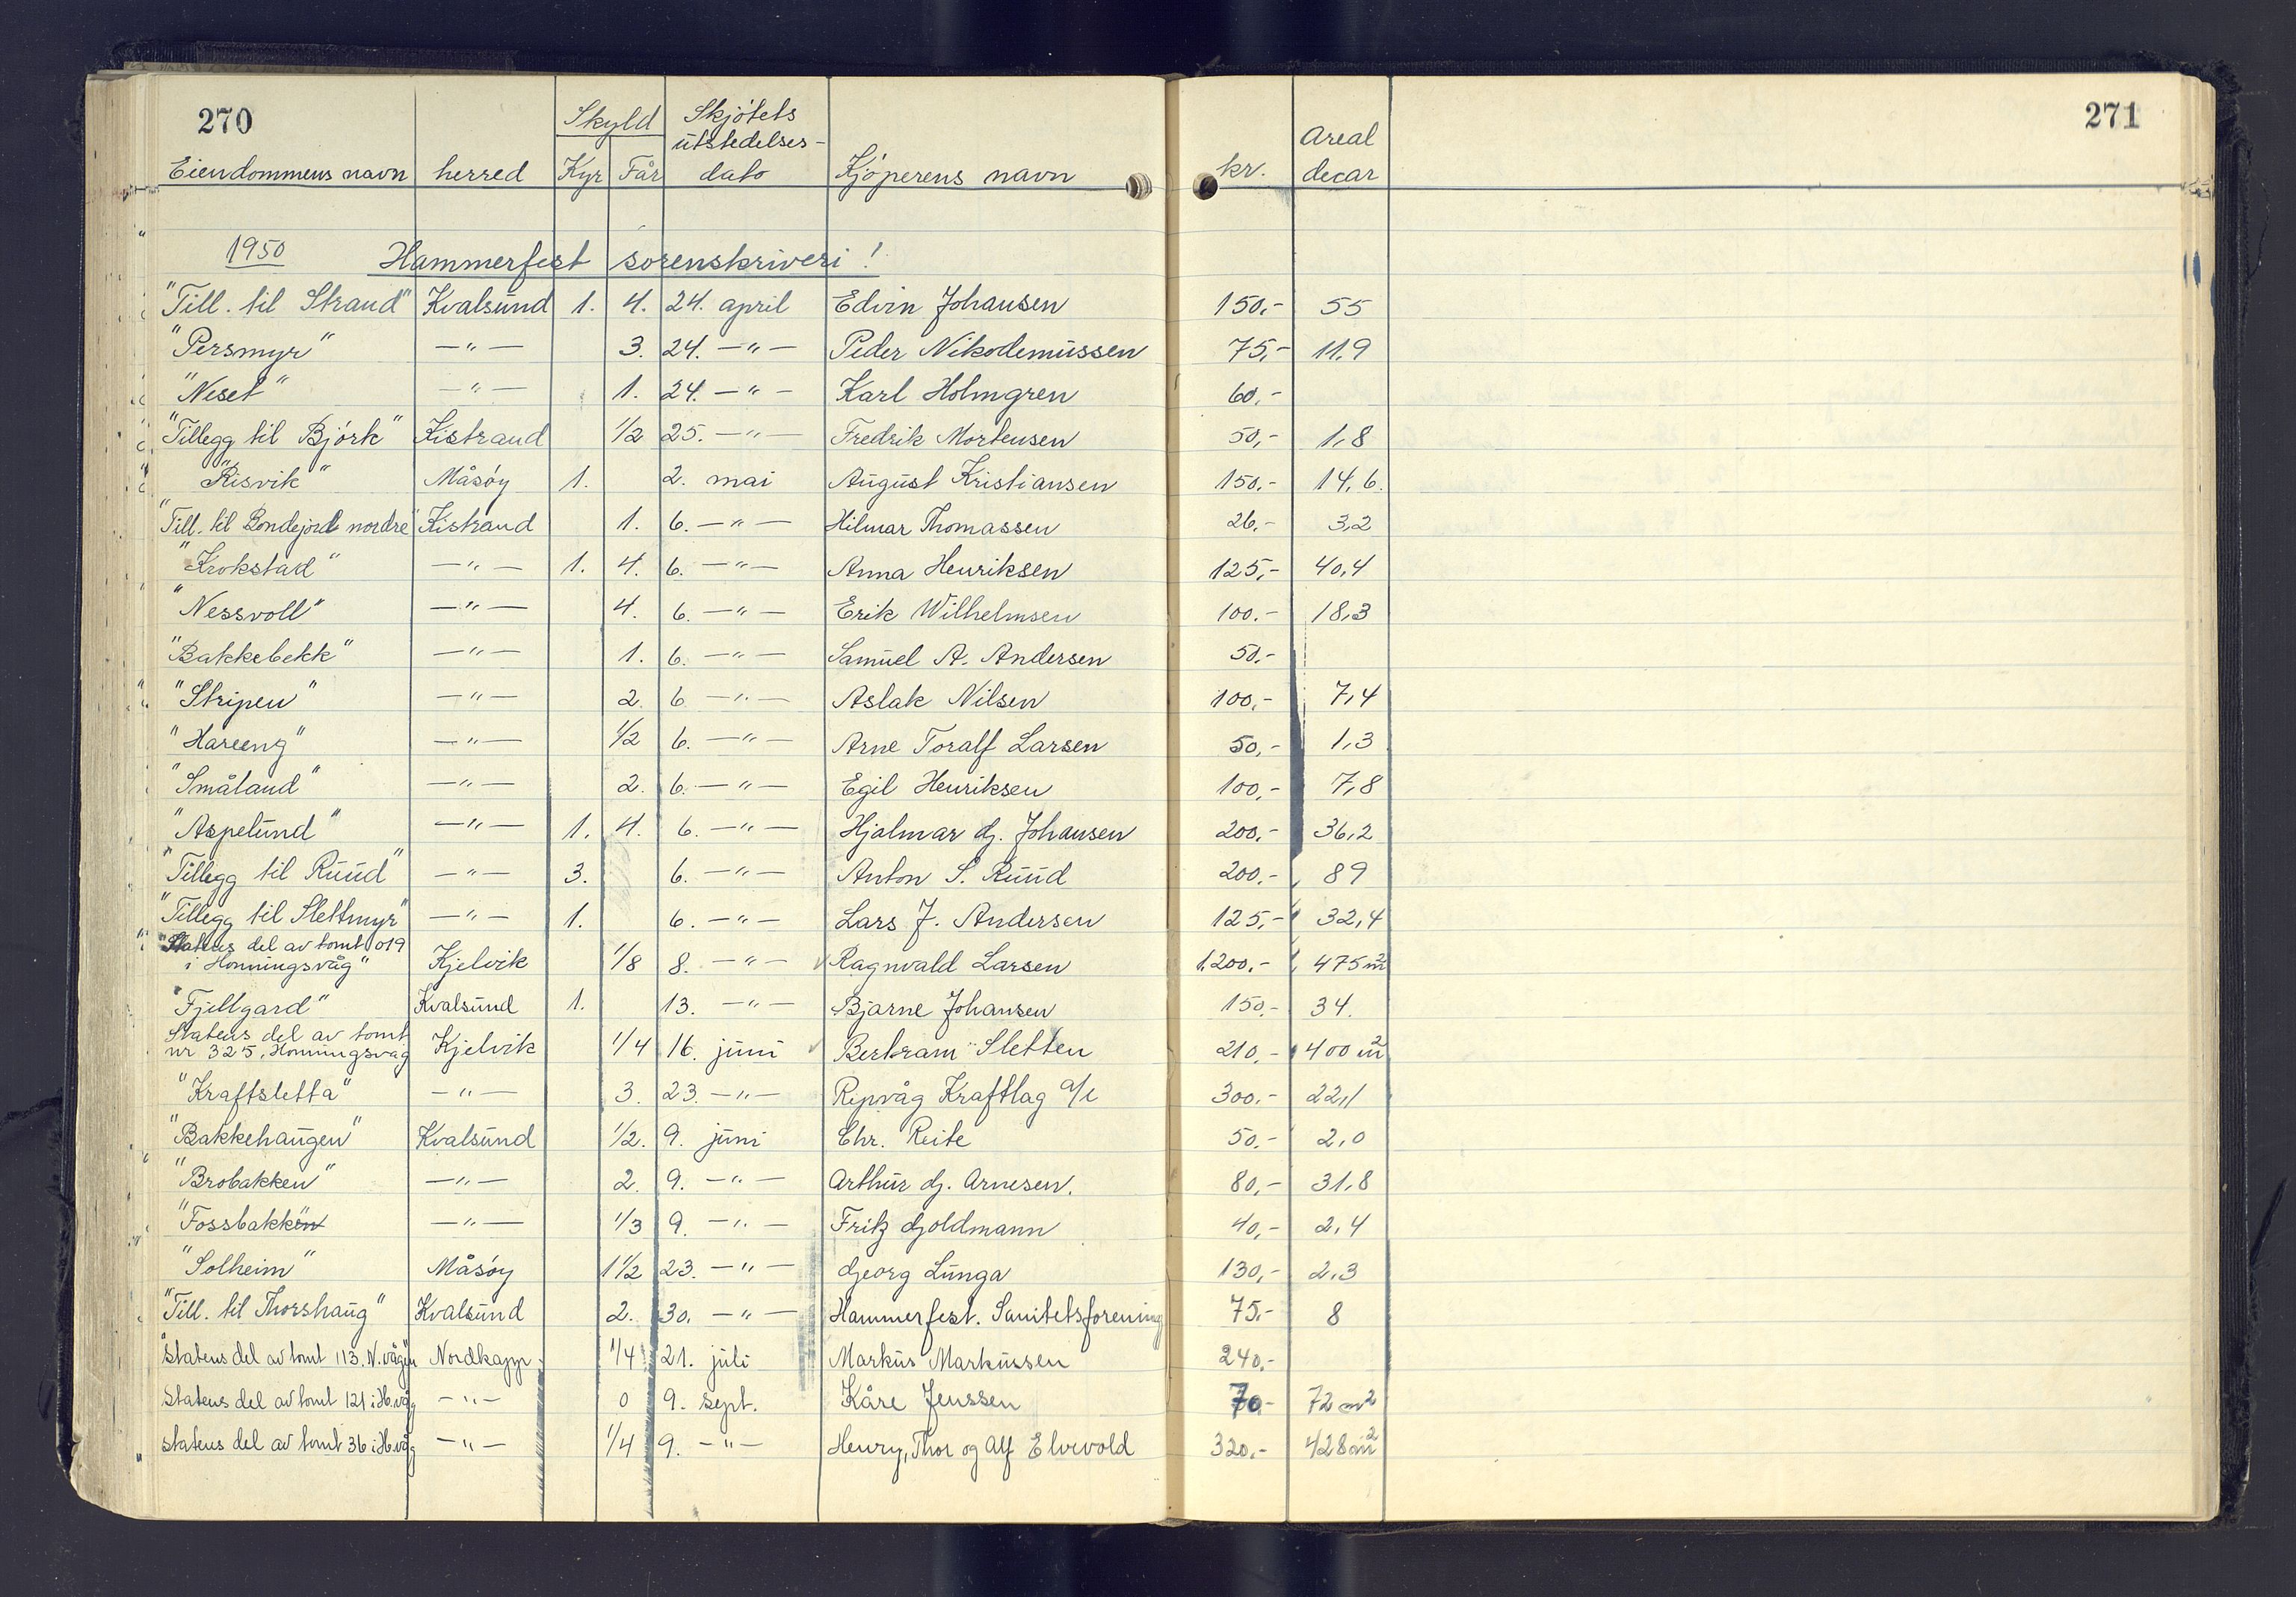 270
271
Skyld Skjøtets utstedelses-
Areal
Eiendommens navn herred Kyr Får dato Kjøperens navn kr. decar
1950 Hammerfest sorenskriveri!
"Till. til Strand" Kvalsund 1. 4. 24. april Edvin Johansen 150,- 55
"Persmyr" —"— 3. 24. —"— Peder Nikodemussen 75,- 11,9
"Neset" —"— 1. 24. —"— Karl Holmgren 60,-
"Tillegg til Bjørk" Kistrand 1/2 25. —"— Fredrik Mortensen 50,- 1,8
"Risvik" Måsøy 1. 2. mai August Kristiansen 150,- 14,6.
"Till. til Bondejord nordre" Kistrand 1. 6. —"— Hilmar Thomassen 26,- 3,2
"Krokstad" —"— 1. 4. 6. —"— Anna Henriksen 125,- 40,4
"Nessvoll" —"— 4. 6. —"— Erik Wilhelmsen 100.- 18,3
"Bakkebekk" —"— 1. 6. —"— Samuel A. Andersen 50,-
"Stripen" —"— 2. 6 —"— Aslak Nilsen 100,- 7,4
"Hareeng" —"— 1/2 6. —"— Arne Toralf Larsen 50,- 1,3
"Småland" —"— 2. 6. —"— Egil Henriksen 100,- 7,8
"Aspelund" —"— 1. 4. 6. —"— Hjalmar G. Johansen 200,- 36,2
"Tillegg til Ruud" —"— 3. 6. —"— Anton S. Ruud 200,- 89
"Tillegg til Slettmyr" —"— 1. 6. —"— Lars J. Andersen 125,- 32,4
"Statens del av tomt 019
i Honningsvåg" Kjelvik 1/8 8. —"— Ragnvald Larsen 1.200,- 475 m2
"Fjellgard" Kvalsund 1. 13. —"— Bjarne Johansen 150,- 34.
Statens del av tomt
nr 325, Honningsvåg Kjelvik 1/4 16. juni Bertram Sletten 210,- 400 m2
"Kraftsletta" —"— 3. 23. —"— Repvåg Kraftlag a/l 300,- 22,1
"Bakkehaugen" Kvalsund 1/2. 9. juni Chr. Reite 50,- 2,0
"Brobakken" —"— 2. 9. —"— Arthur G. Arnesen. 80,- 31,8
"Fossbakken —"— 1/3 9. —"— Fritz Goldmann 40,- 2,4
"Solheim" Måsøy 1 1/2 23. —"— Georg Lunga 130,- 2,3
"Till. til Thorshaug" Kvalsund 2. 30. —"— Hammerfest. Sanitetsforening 75,- 8
Statens del av tomt 113. N.vågen Nordkapp. 1/4 21. juli Markus Markussen 240,-
Statens del av tomt 121 i H.våg —"— 0 9. sept. Kåre Jenssen 70,- 72 m2
Statens del av tomt 36 i H.våg —"— 1/4 9. —"— Henry, Thor og Alf Elvevold 320,- 428 m2